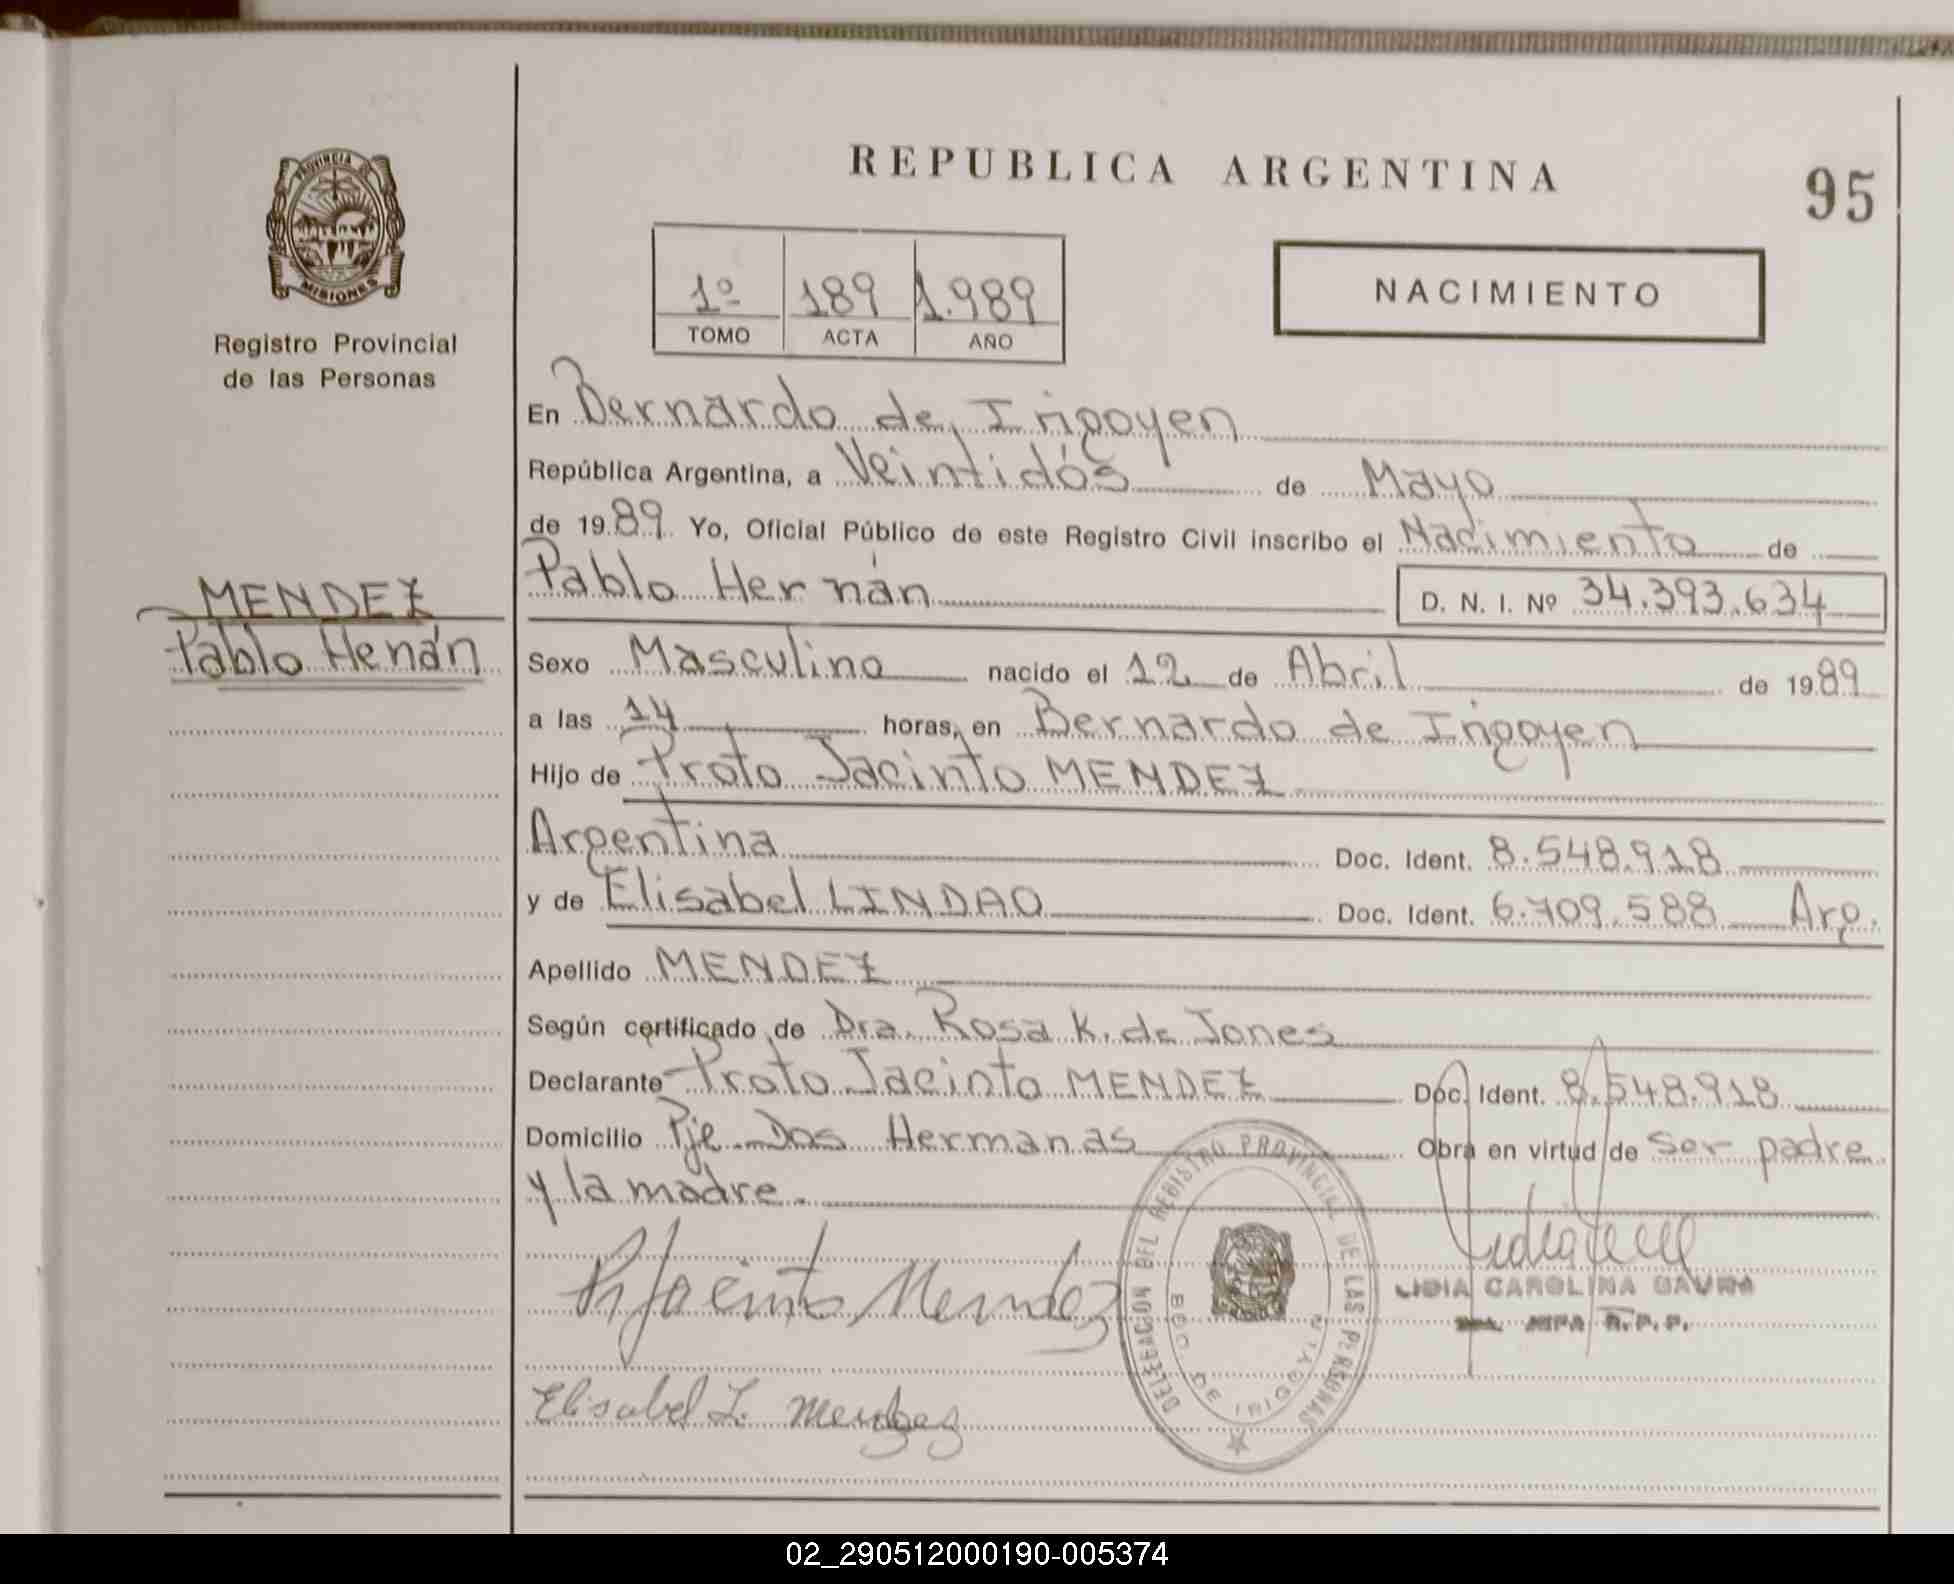 REPUBLICA ARGENTINA
95
PROVINCIA DE
MISIONES
Registro Provincial
de las Personas
1º 189 1.989
TOMO ACTA AÑO
NACIMIENTO
En Bernardo de Irigoyen
República Argentina, a Veintidós de Mayo
de 1989 Yo, Oficial Público de este Registro Civil inscribo el Nacimiento de
Pablo Hernán D. N. I. Nº 34.393.634
MENDEZ
Pablo Henán
Sexo Masculino nacido el 12 de Abril de 1989
a las 14 horas, en Bernardo de Irigoyen
Hijo de Proto Jacinto MENDEZ
Argentina Doc. Ident. 8.548.918
y de Elisabel LINDAO Doc. Ident. 6.709.588 Arg.
Apellido MENDEZ
Según certificado de Dra. Rosa K. de Jones
Declarante Proto Jacinto MENDEZ Doc. Ident. 8.548.918
Domicilio Pje Dos Hermanas Obra en virtud de ser padre
y la madre.
Jacinto Mendez
DELEGACION DEL REGISTRO PROVINCIAL DE LAS PERSONAS
BDO DE IRIGOYEN
LIDIA CAROLINA
R.P.P.
Elisabel L. Mendez
02_290512000190-005374